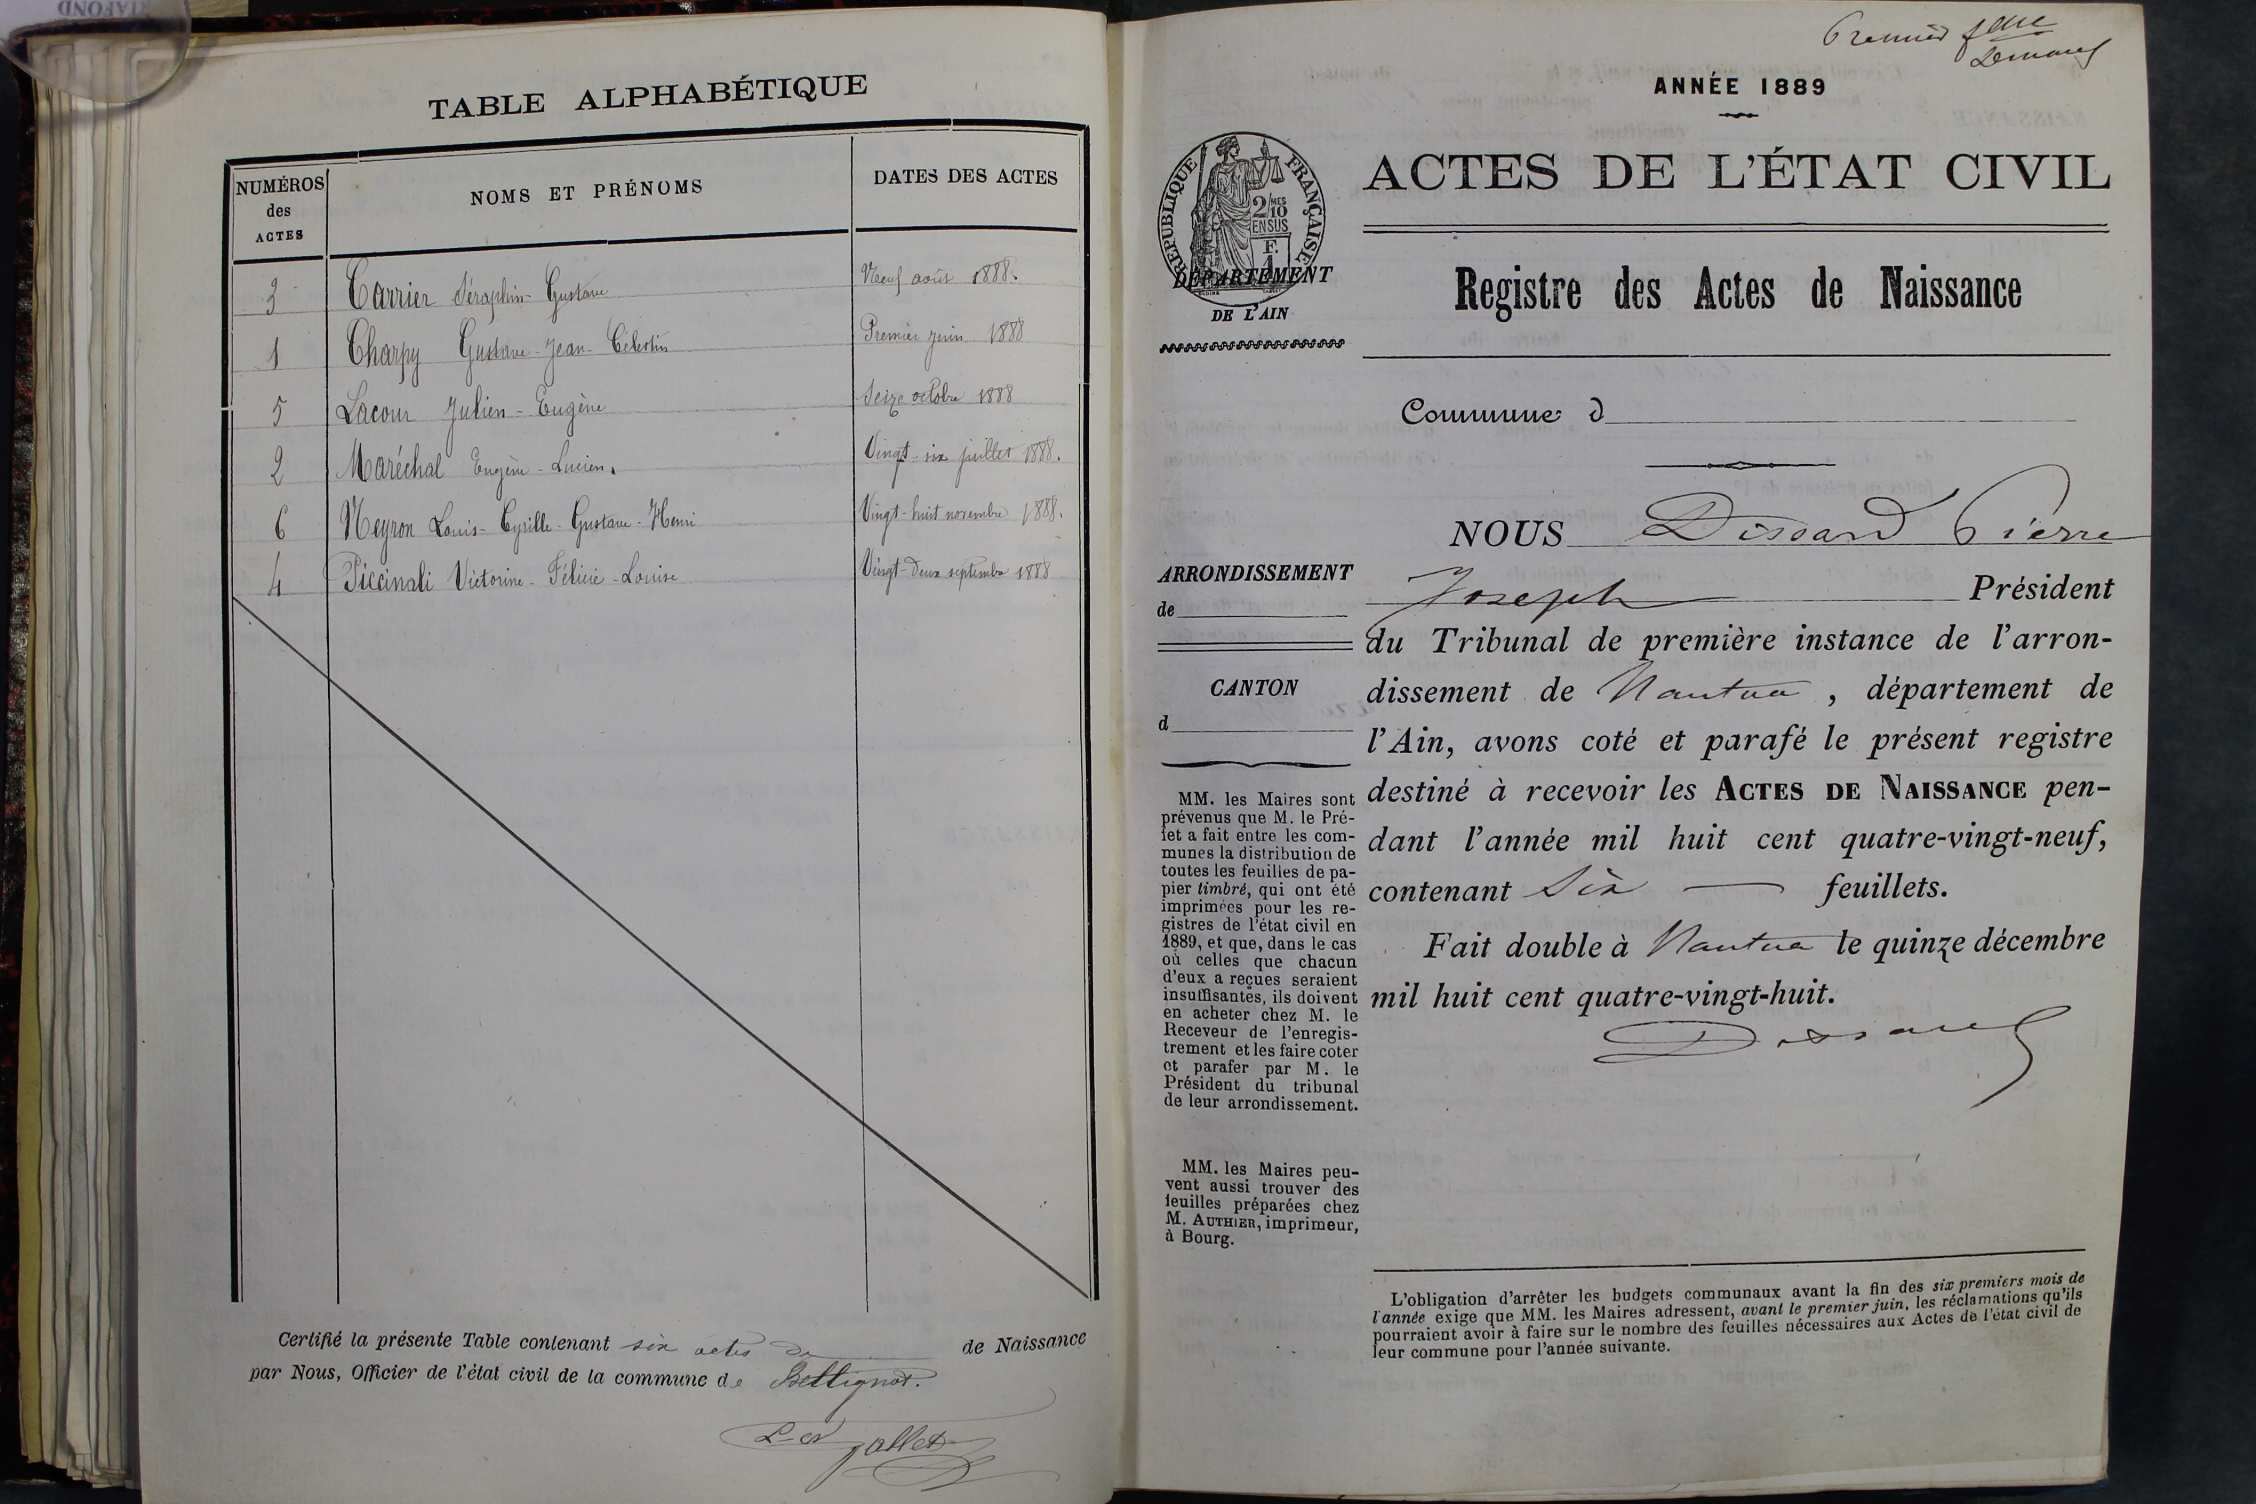 TABLE ALPHABÉTIQUE
NUMÉROS des ACTES
NOMS ET PRÉNOMS
DATES DES ACTES
3 Carrier Séraphin-Gustave Neuf août 1888.
1 Charpy Gustave-Jean-Célestin Premier juin 1888
5 Lacour Julien-Eugène Seize octobre 1888
2 Maréchal Eugène-Lucien. Vingt-six juillet 1888.
6 Neyron Louis-Cyrille-Gustave-Henri Vingt-huit novembre 1888.
4 Piccinali Victorine-Félicie-Louise Vingt-deux septembre 1888
Certifié la présente Table contenant six actes de de Naissance
par Nous, Officier de l'état civil de la commune de Bettignat.
Premier
ANNÉE 1889
ACTES DE L'ÉTAT CIVIL
RÉPUBLIQUE FRANÇAISE
2/10 MES
EN SUS
F.
1
DÉPARTEMENT
DE L'AIN
Registre des Actes de Naissance
Commune d
NOUS Dissard Pierre
Joseph Président
du Tribunal de première instance de l'arron-
dissement de Nantua, département de
l'Ain, avons coté et parafé le présent registre
destiné à recevoir les ACTES DE NAISSANCE pen-
dant l'année mil huit cent quatre-vingt-neuf,
contenant Six — feuillets.
Fait double à Nantua le quinze décembre
mil huit cent quatre-vingt-huit.
Dissard
ARRONDISSEMENT
de
CANTON
d
MM. les Maires sont
prévenus que M. le Pré-
fet a fait entre les com-
munes la distribution de
toutes les feuilles de pa-
pier timbré, qui ont été
imprimées pour les re-
gistres de l'état civil en
1889, et que, dans le cas
où celles que chacun
d'eux a reçues seraient
insuffisantes, ils doivent
en acheter chez M. le
Receveur de l'enregis-
trement et les faire coter
et parafer par M. le
Président du tribunal
de leur arrondissement.
MM. les Maires peu-
vent aussi trouver des
feuilles préparées chez
M. AUTHIER, imprimeur,
à Bourg.
L'obligation d'arrêter les budgets communaux avant la fin des six premiers mois de
l'année exige que MM. les Maires adressent, avant le premier juin, les réclamations qu'ils
pourraient avoir à faire sur le nombre des feuilles nécessaires aux Actes de l'état civil de
leur commune pour l'année suivante.